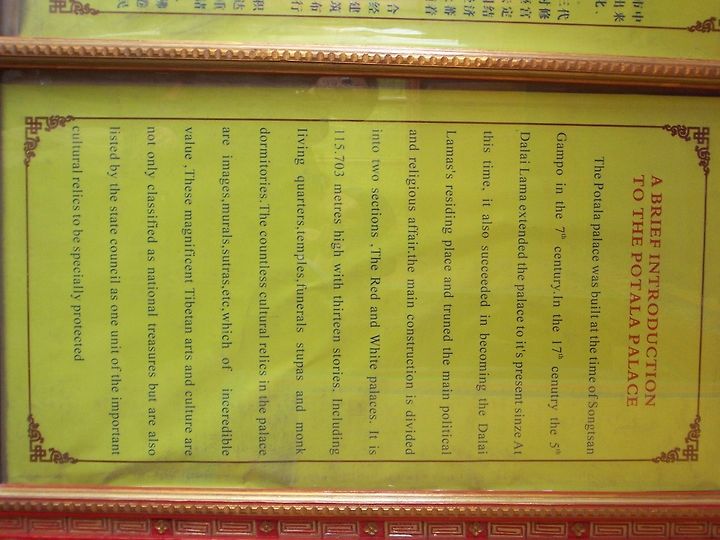 A BRIEF INTRODUCTION
TO THE POTALA PALACE
The Potala palace was built at the time of Songtsan
Gampo in the 7th century.In the 17th cenutry the 5th
Dalai Lama extended the palace to it's present sinze At
this time, it also succeeded in becoming the Dalai
Lamas's residing place and truned the main political
and religious affair.the main construction is divided
into two sections ,The Red and White palaces. It is
115.703 metres high with thirteen stories. Including
living quarters,temples,funerals stupas and monk
dormitories.The countless cultural relics in the palace
are images,murals,sutras,etc,which of inceredible
value ,These magnificent Tibetan arts and culture are
not only classified as national treasures but are also
listed by the state council as one unit of the important
cultural relics to be specially protected